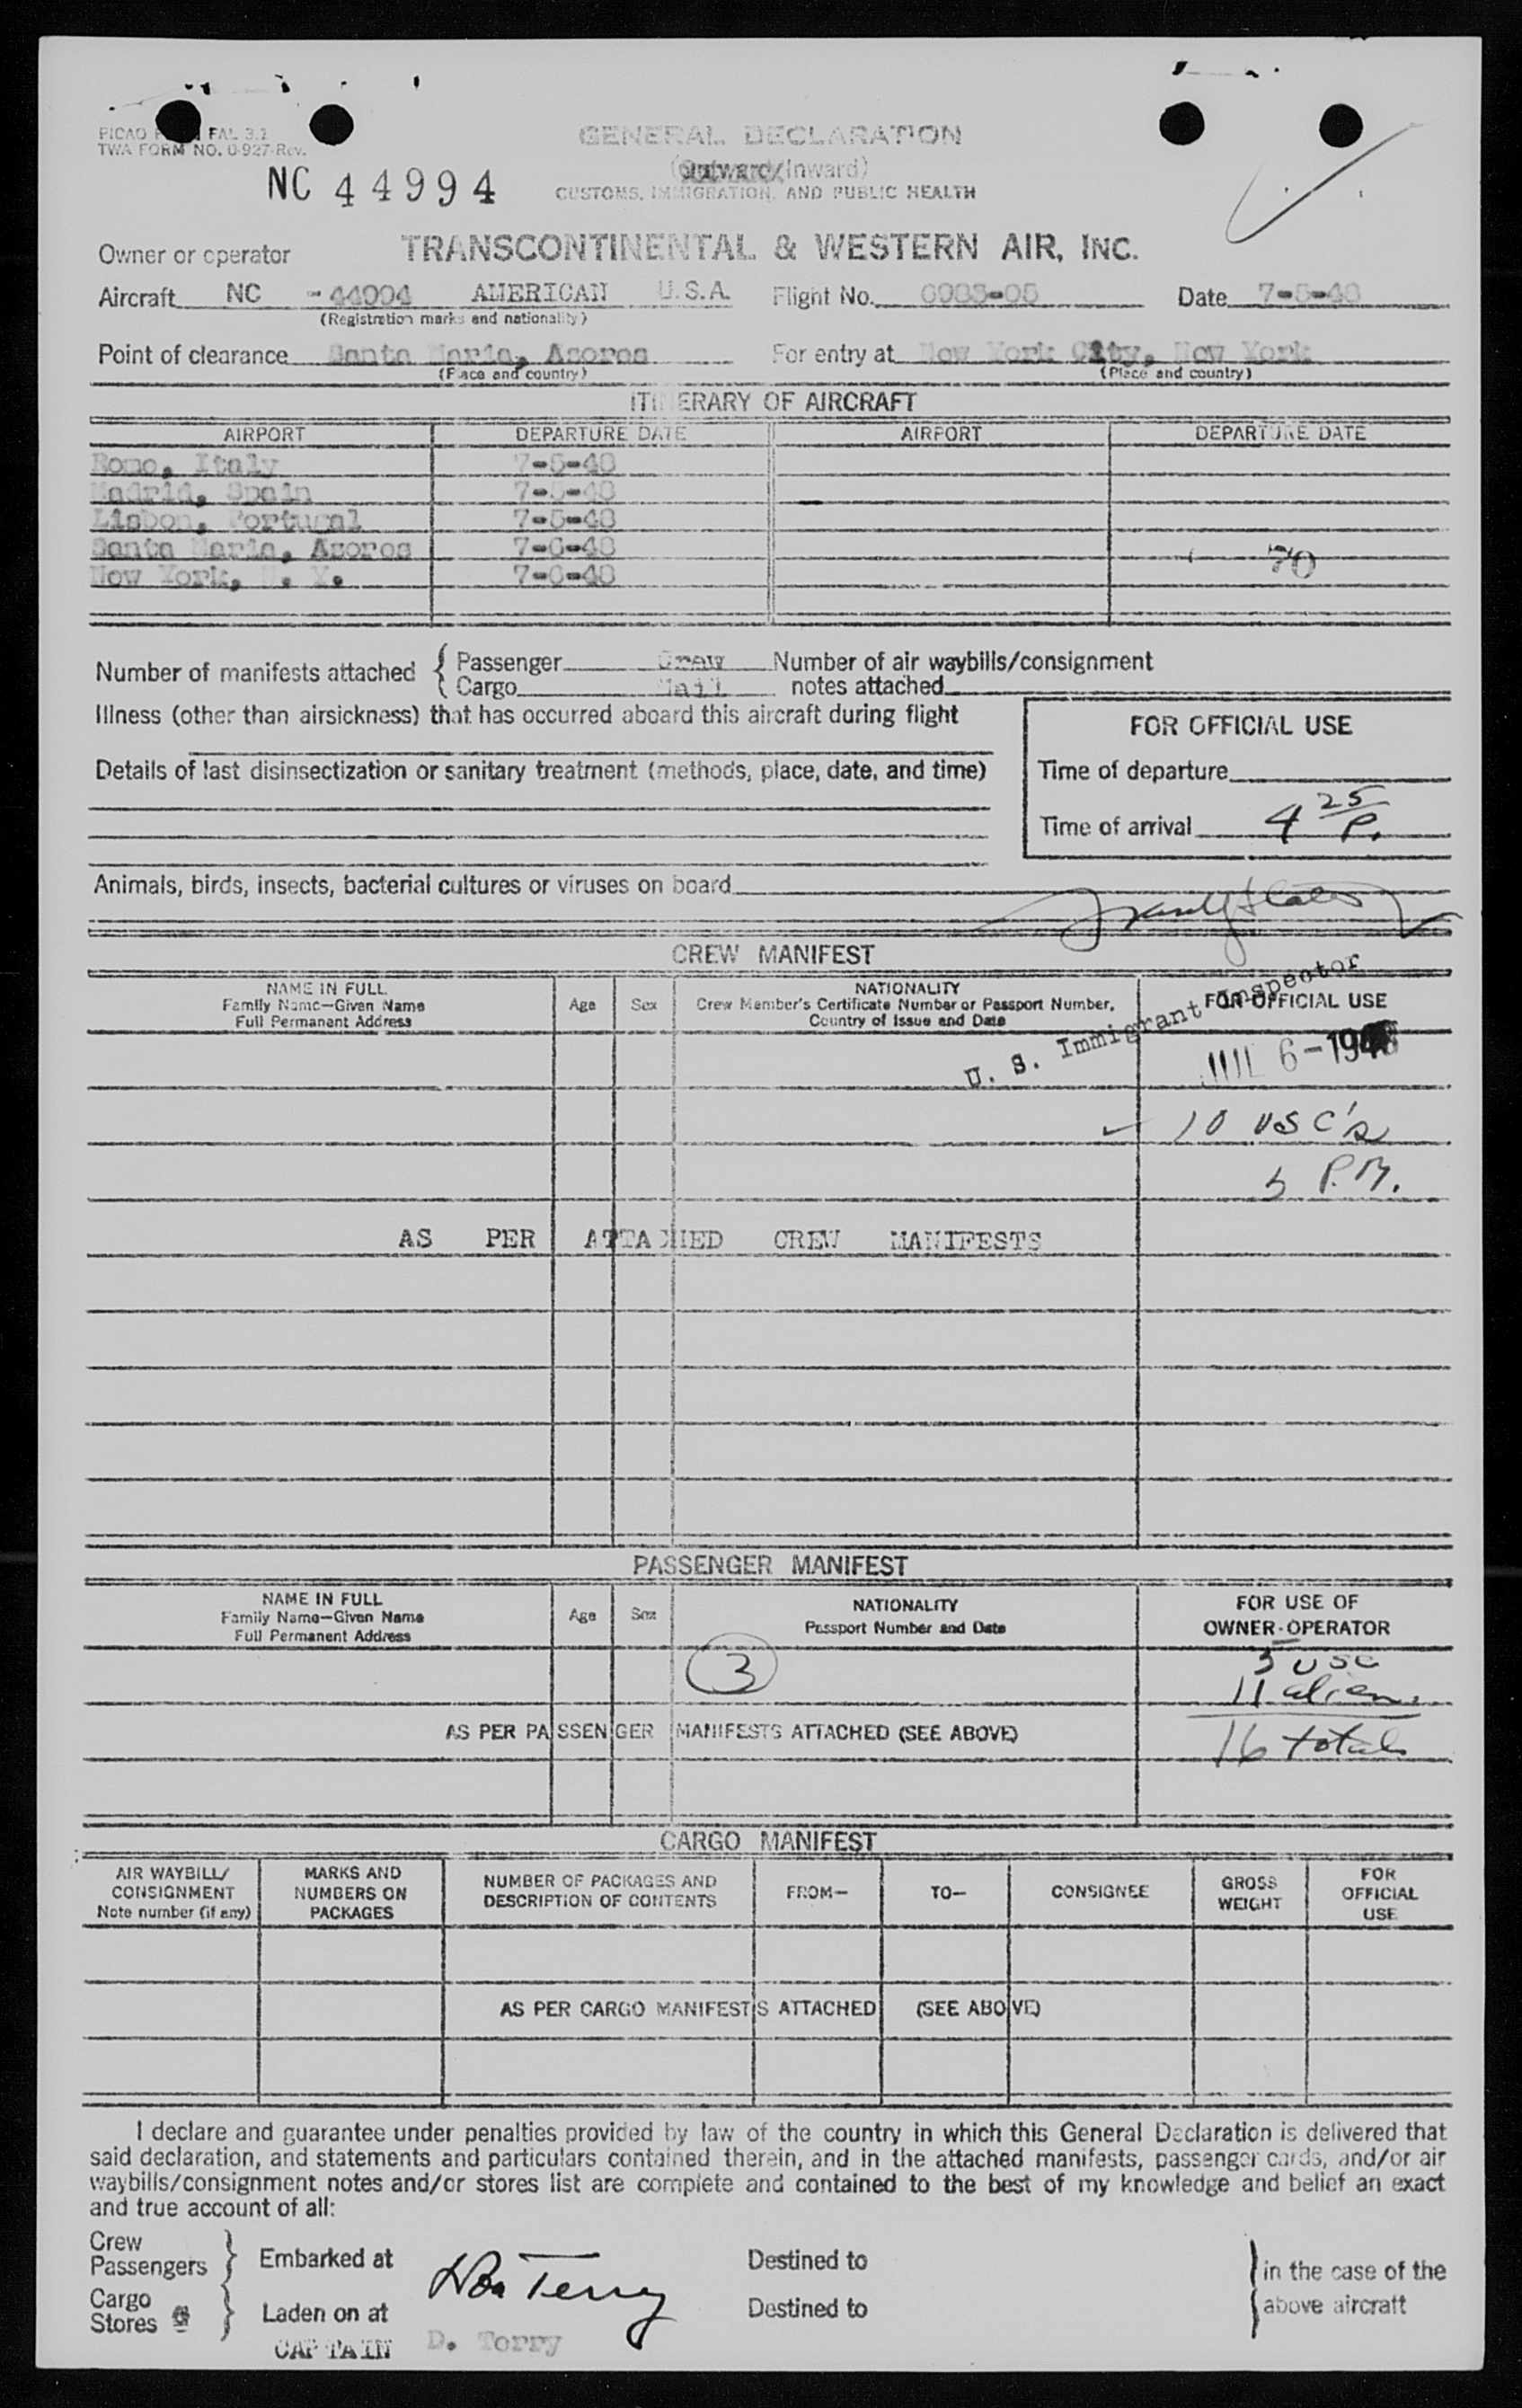 PICAO FAL 3.2
TWA FORM NO. 0-927-Rev.
GENERAL DECLARATION
(Outward/Inward)
CUSTOMS, IMMIGRATION, AND PUBLIC HEALTH
NC 44994
Owner or operator TRANSCONTINENTAL & WESTERN AIR, INC.
Aircraft NC -44994 AMERICAN U.S.A. Flight No. 6983-05 Date 7-5-48
(Registration marks and nationality)
Point of clearance Santa Maria, Azores For entry at New York City, New York
(Place and country) (Place and country)
ITINERARY OF AIRCRAFT
AIRPORT DEPARTURE DATE AIRPORT DEPARTURE DATE
Rome, Italy 7-5-48
Madrid, Spain 7-5-48
Lisbon, Portugal 7-5-48
Santa Maria, Azores 7-6-48
70
New York, N. Y. 7-6-48
Number of manifests attached { Passenger Crew Number of air waybills/consignment
Cargo Mail notes attached
Illness (other than airsickness) that has occurred aboard this aircraft during flight
FOR OFFICIAL USE
Details of last disinsectization or sanitary treatment (methods, place, date, and time)
Time of departure
Time of arrival 4 25 P.
Animals, birds, insects, bacterial cultures or viruses on board
CREW MANIFEST
NAME IN FULL
Family Name—Given Name
Full Permanent Address
Age Sex
NATIONALITY
Crew Member's Certificate Number or Passport Number,
Country of Issue and Date
FOR OFFICIAL USE
U. S. Immigrant Inspector
JUL 6-1948
10 USC's
5 P.M.
AS PER ATTACHED CREW MANIFESTS
PASSENGER MANIFEST
NAME IN FULL
Family Name—Given Name
Full Permanent Address
Age Sex
NATIONALITY
Passport Number and Date
FOR USE OF
OWNER-OPERATOR
3
5 USC
11 aliens
AS PER PASSENGER MANIFESTS ATTACHED (SEE ABOVE)
16 total
CARGO MANIFEST
AIR WAYBILL/
CONSIGNMENT
Note number (if any)
MARKS AND
NUMBERS ON
PACKAGES
NUMBER OF PACKAGES AND
DESCRIPTION OF CONTENTS
FROM—
TO—
CONSIGNEE
GROSS
WEIGHT
FOR
OFFICIAL
USE
AS PER CARGO MANIFESTS ATTACHED (SEE ABOVE)
I declare and guarantee under penalties provided by law of the country in which this General Declaration is delivered that
said declaration, and statements and particulars contained therein, and in the attached manifests, passenger cards, and/or air
waybills/consignment notes and/or stores list are complete and contained to the best of my knowledge and belief an exact
and true account of all:
Crew
Passengers } Embarked at Destined to
in the case of the
Don Terry
Cargo
Stores } Laden on at Destined to
above aircraft
CAPTAIN D. Terry